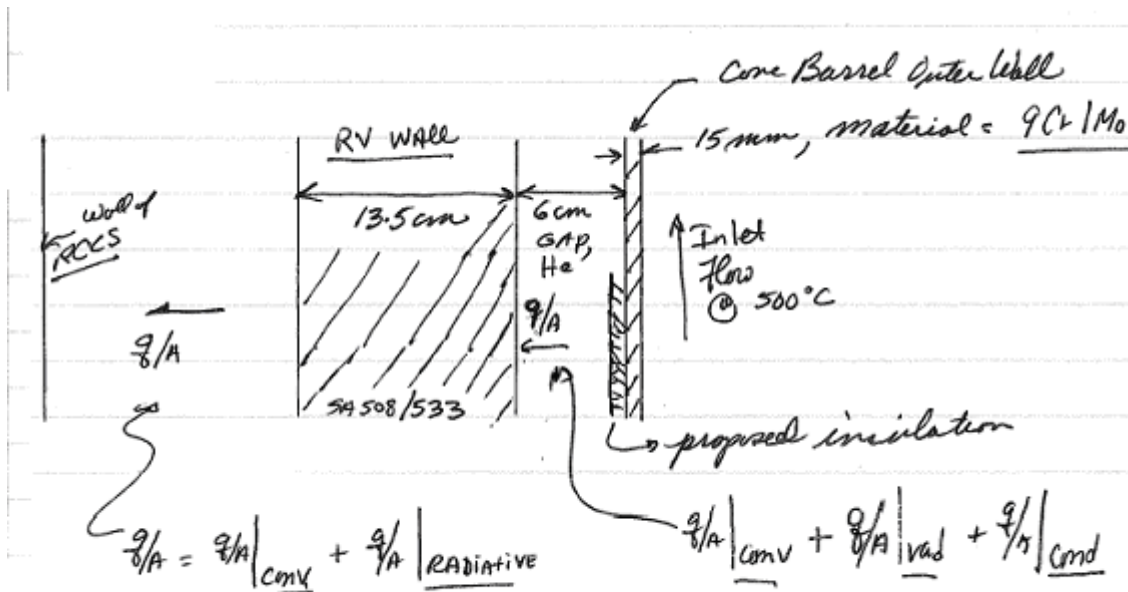 Core Barrel Outer Wall
15 mm, material = 9Cr 1Mo
RV WALL
wall of
RCCS
13.5cm
6cm
GAP,
He
Inlet
Flow
@ 500°C
q/A
q/A
SA508/533
proposed insulation
q/A = q/A|conv + q/A|RADIATIVE
q/A|conv + q/A|rad + q/A|cond